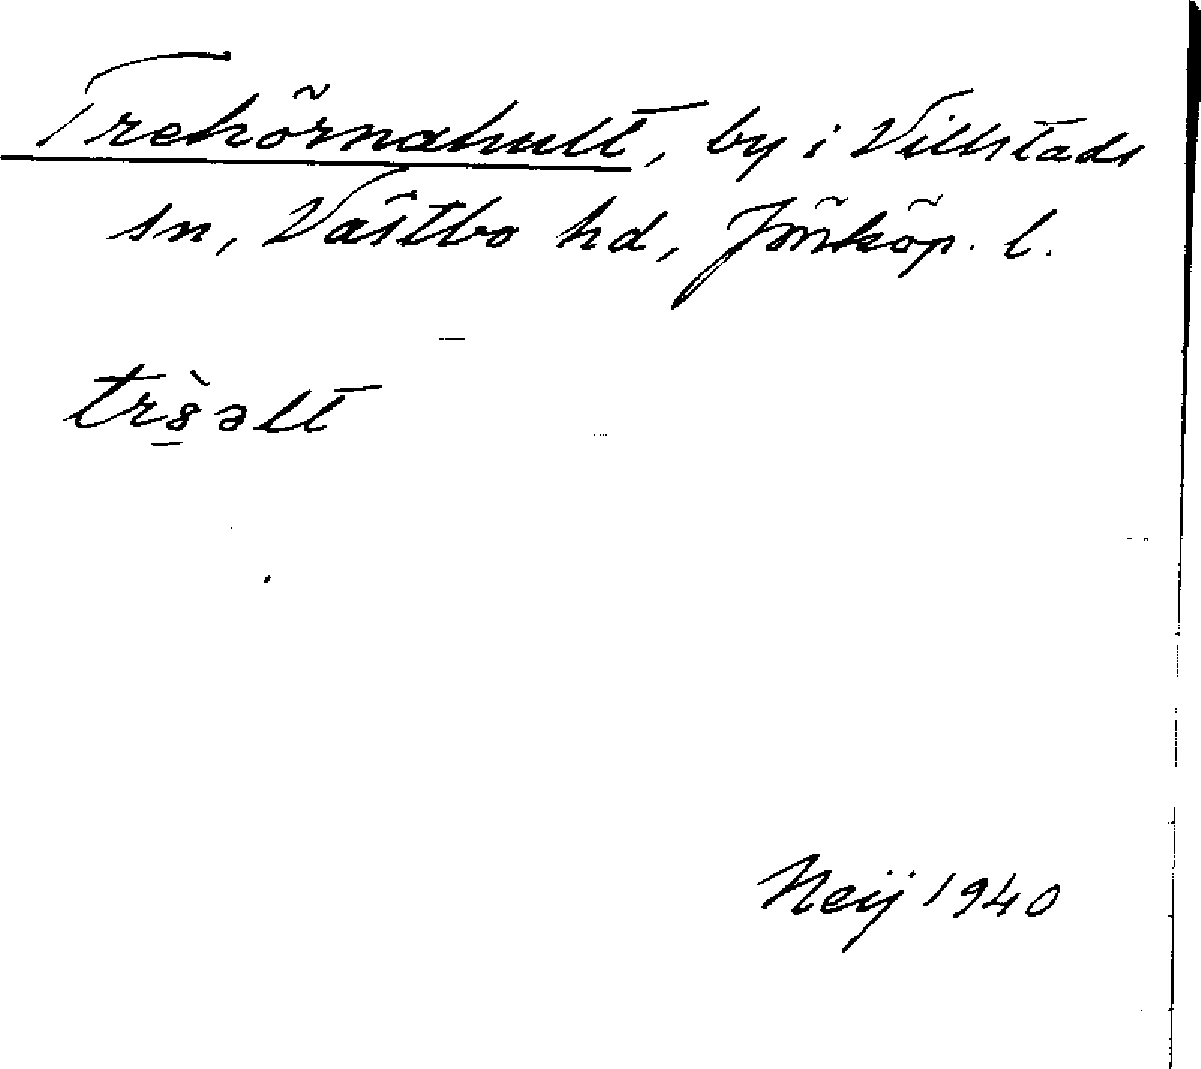 Trehörnahult, by i Villstads
sn, Västbo hd, Jönköp. l.
trs̱̀əlt
Neij 1940